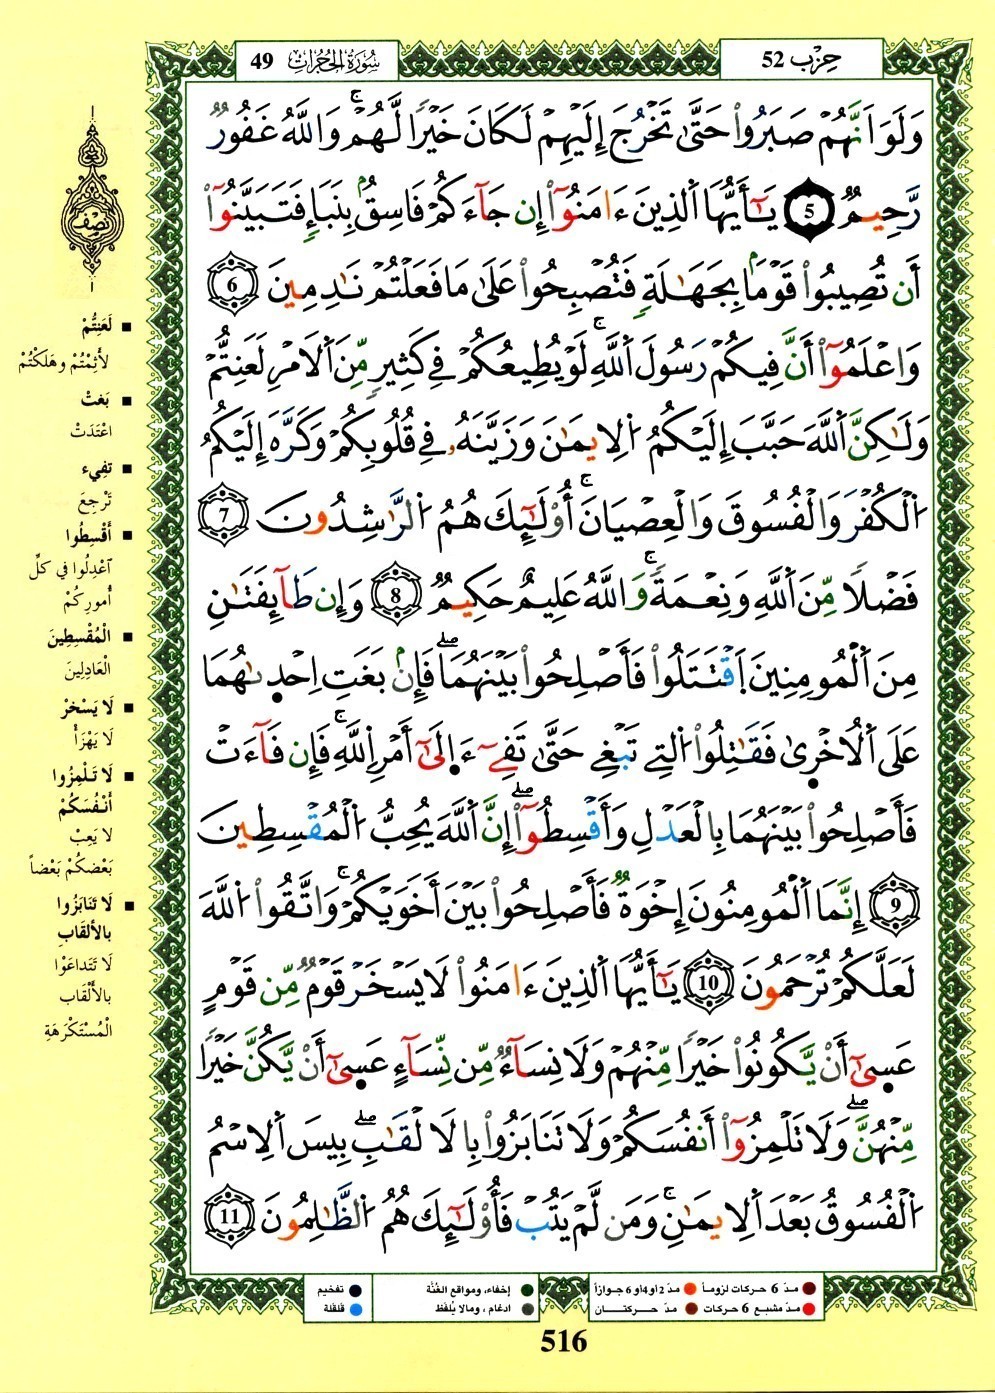 حِزْب 52
سُورَةُ الحُجُرَاتِ 49
وَلَوَ اَنَّهُمْ صَبَرُواْ حَتَّىٰ تَخْرُجَ إِلَيْهِمْ لَكَانَ خَيْراٗ لَّهُمْۖ وَاللَّهُ غَفُورٞ
رَّحِيمٞ 5 يَٰٓأَيُّهَا اَلذِينَ ءَامَنُوٓاْ إِن جَآءَكُمْ فَاسِقُۢ بِنَبَإٖ فَتَبَيَّنُوٓاْ
أَن تُصِيبُواْ قَوْماَۢ بِجَهَٰلَةٖ فَتُصْبِحُواْ عَلَىٰ مَا فَعَلْتُمْ نَٰدِمِينَ 6
وَاعْلَمُوٓاْ أَنَّ فِيكُمْ رَسُولَ اَللَّهِۖ لَوْ يُطِيعُكُمْ فِے كَثِيرٖ مِّنَ اَلَامْرِ لَعَنِتُّمْ
وَلَٰكِنَّ اَللَّهَ حَبَّبَ إِلَيْكُمُ اُلِايمَٰنَ وَزَيَّنَهُۥ فِے قُلُوبِكُمْ وَكَرَّهَ إِلَيْكُمُ
اُلْكُفْرَ وَالْفُسُوقَ وَالْعِصْيَانَۖ أُوْلَٰٓئِكَ هُمُ اُلرَّٰشِدُونَ 7
فَضْلاٗ مِّنَ اَللَّهِ وَنِعْمَةٗۖ وَاللَّهُ عَلِيمٌ حَكِيمٞ 8 وَإِن طَآئِفَتَٰنِ
مِنَ اَلْمُومِنِينَ اَقْتَتَلُواْ فَأَصْلِحُواْ بَيْنَهُمَاۖ فَإِنۢ بَغَتِ اِحْدَىٰهُمَا
عَلَى اَلُاخْرَىٰ فَقَٰتِلُواْ اُلتِے تَبْغِے حَتَّىٰ تَفِےٓءَ اِلَىٰٓ أَمْرِ اِللَّهِۖ فَإِن فَآءَتْ
فَأَصْلِحُواْ بَيْنَهُمَا بِالْعَدْلِ وَأَقْسِطُوٓاْۖ إِنَّ اَللَّهَ يُحِبُّ اُلْمُقْسِطِينَ
9 إِنَّمَا اَلْمُومِنُونَ إِخْوَةٞ فَأَصْلِحُواْ بَيْنَ أَخَوَيْكُمْۖ وَاتَّقُواْ اُللَّهَ
لَعَلَّكُمْ تُرْحَمُونَ 10 يَٰٓأَيُّهَا اَلذِينَ ءَامَنُواْ لَا يَسْخَرْ قَوْمٞ مِّن قَوْمٍ
عَسِىٰٓ أَنْ يَّكُونُواْ خَيْراٗ مِّنْهُمْ وَلَا نِسَآءٞ مِّن نِّسَآءٍ عَسِىٰٓ أَنْ يَّكُنَّ خَيْراٗ
مِّنْهُنَّۖ وَلَا تَلْمِزُوٓاْ أَنفُسَكُمْ وَلَا تَنَابَزُواْ بِالَالْقَٰبِۖ بِيسَ اَلِاسْمُ
اُلْفُسُوقُ بَعْدَ اَلِايمَٰنِۖ وَمَن لَّمْ يَتُبْ فَأُوْلَٰٓئِكَ هُمُ اُلظَّٰلِمُونَ 11
نِصْف
لَعَنِتُّمْ
لأَثِمْتُمْ وهَلَكْتُمْ
بَغتْ
اعْتَدَتْ
تَفِيء
تَرْجِعَ
أَقْسِطُوا
اَعْدِلُوا في كلِّ
أُمورِكُمْ
الْمُقْسِطِينَ
الْعَادِلِينَ
لَا يَسْخرْ
لَا يَهْزَأْ
لَا تَلْمِزُوا
أَنْفُسَكُمْ
لا يَعِبْ
بَعْضكُمْ بَعْضاً
لَا تَنَابَزُوا
بالألقَابِ
لَا تَتَداعَوْا
بالأَلْقَاب
الْمُسْتَكْرَهَةِ
مدّ 6 حركات لزوماً
مدّ 2 او 4 او 6 جوازاً
إخفاء، ومواقع الغُنَّة
تفخيم
مدّ مشبع 6 حركات
مدّ حركتــان
ادغام ، ومالا يُلفَظ
قلقلة
516